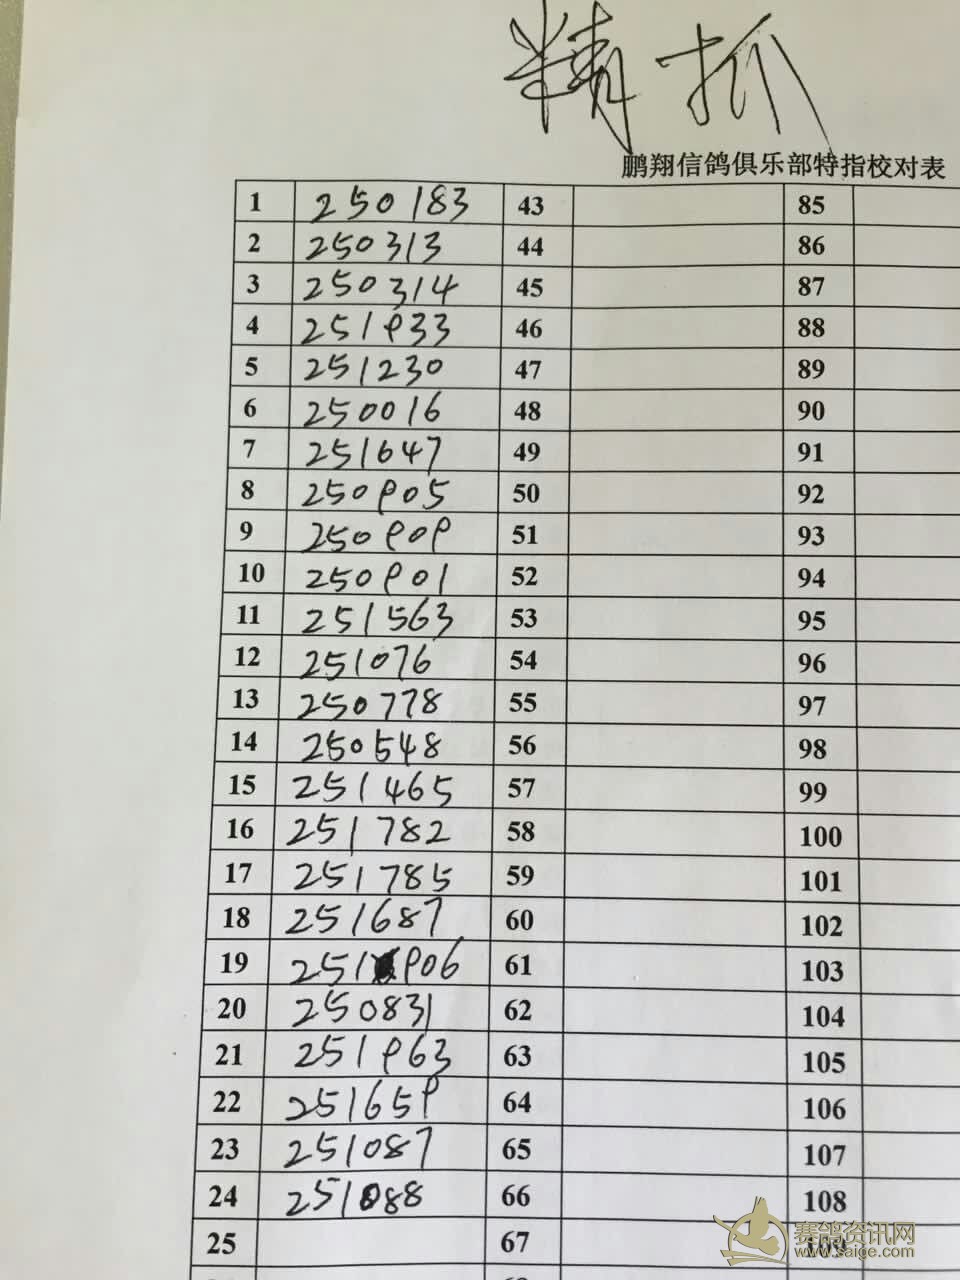 精抓
鹏翔信鸽俱乐部特指校对表
1 250183 43 85
2 250313 44 86
3 250314 45 87
4 251933 46 88
5 251230 47 89
6 250016 48 90
7 251647 49 91
8 250905 50 92
9 250909 51 93
10 250901 52 94
11 251563 53 95
12 251076 54 96
13 250778 55 97
14 250548 56 98
15 251465 57 99
16 251782 58 100
17 251785 59 101
18 251687 60 102
19 251906 61 103
20 250831 62 104
21 251963 63 105
22 251659 64 106
23 251087 65 107
24 251088 66 108
25 67 109
赛鸽资讯网
www.saige.com